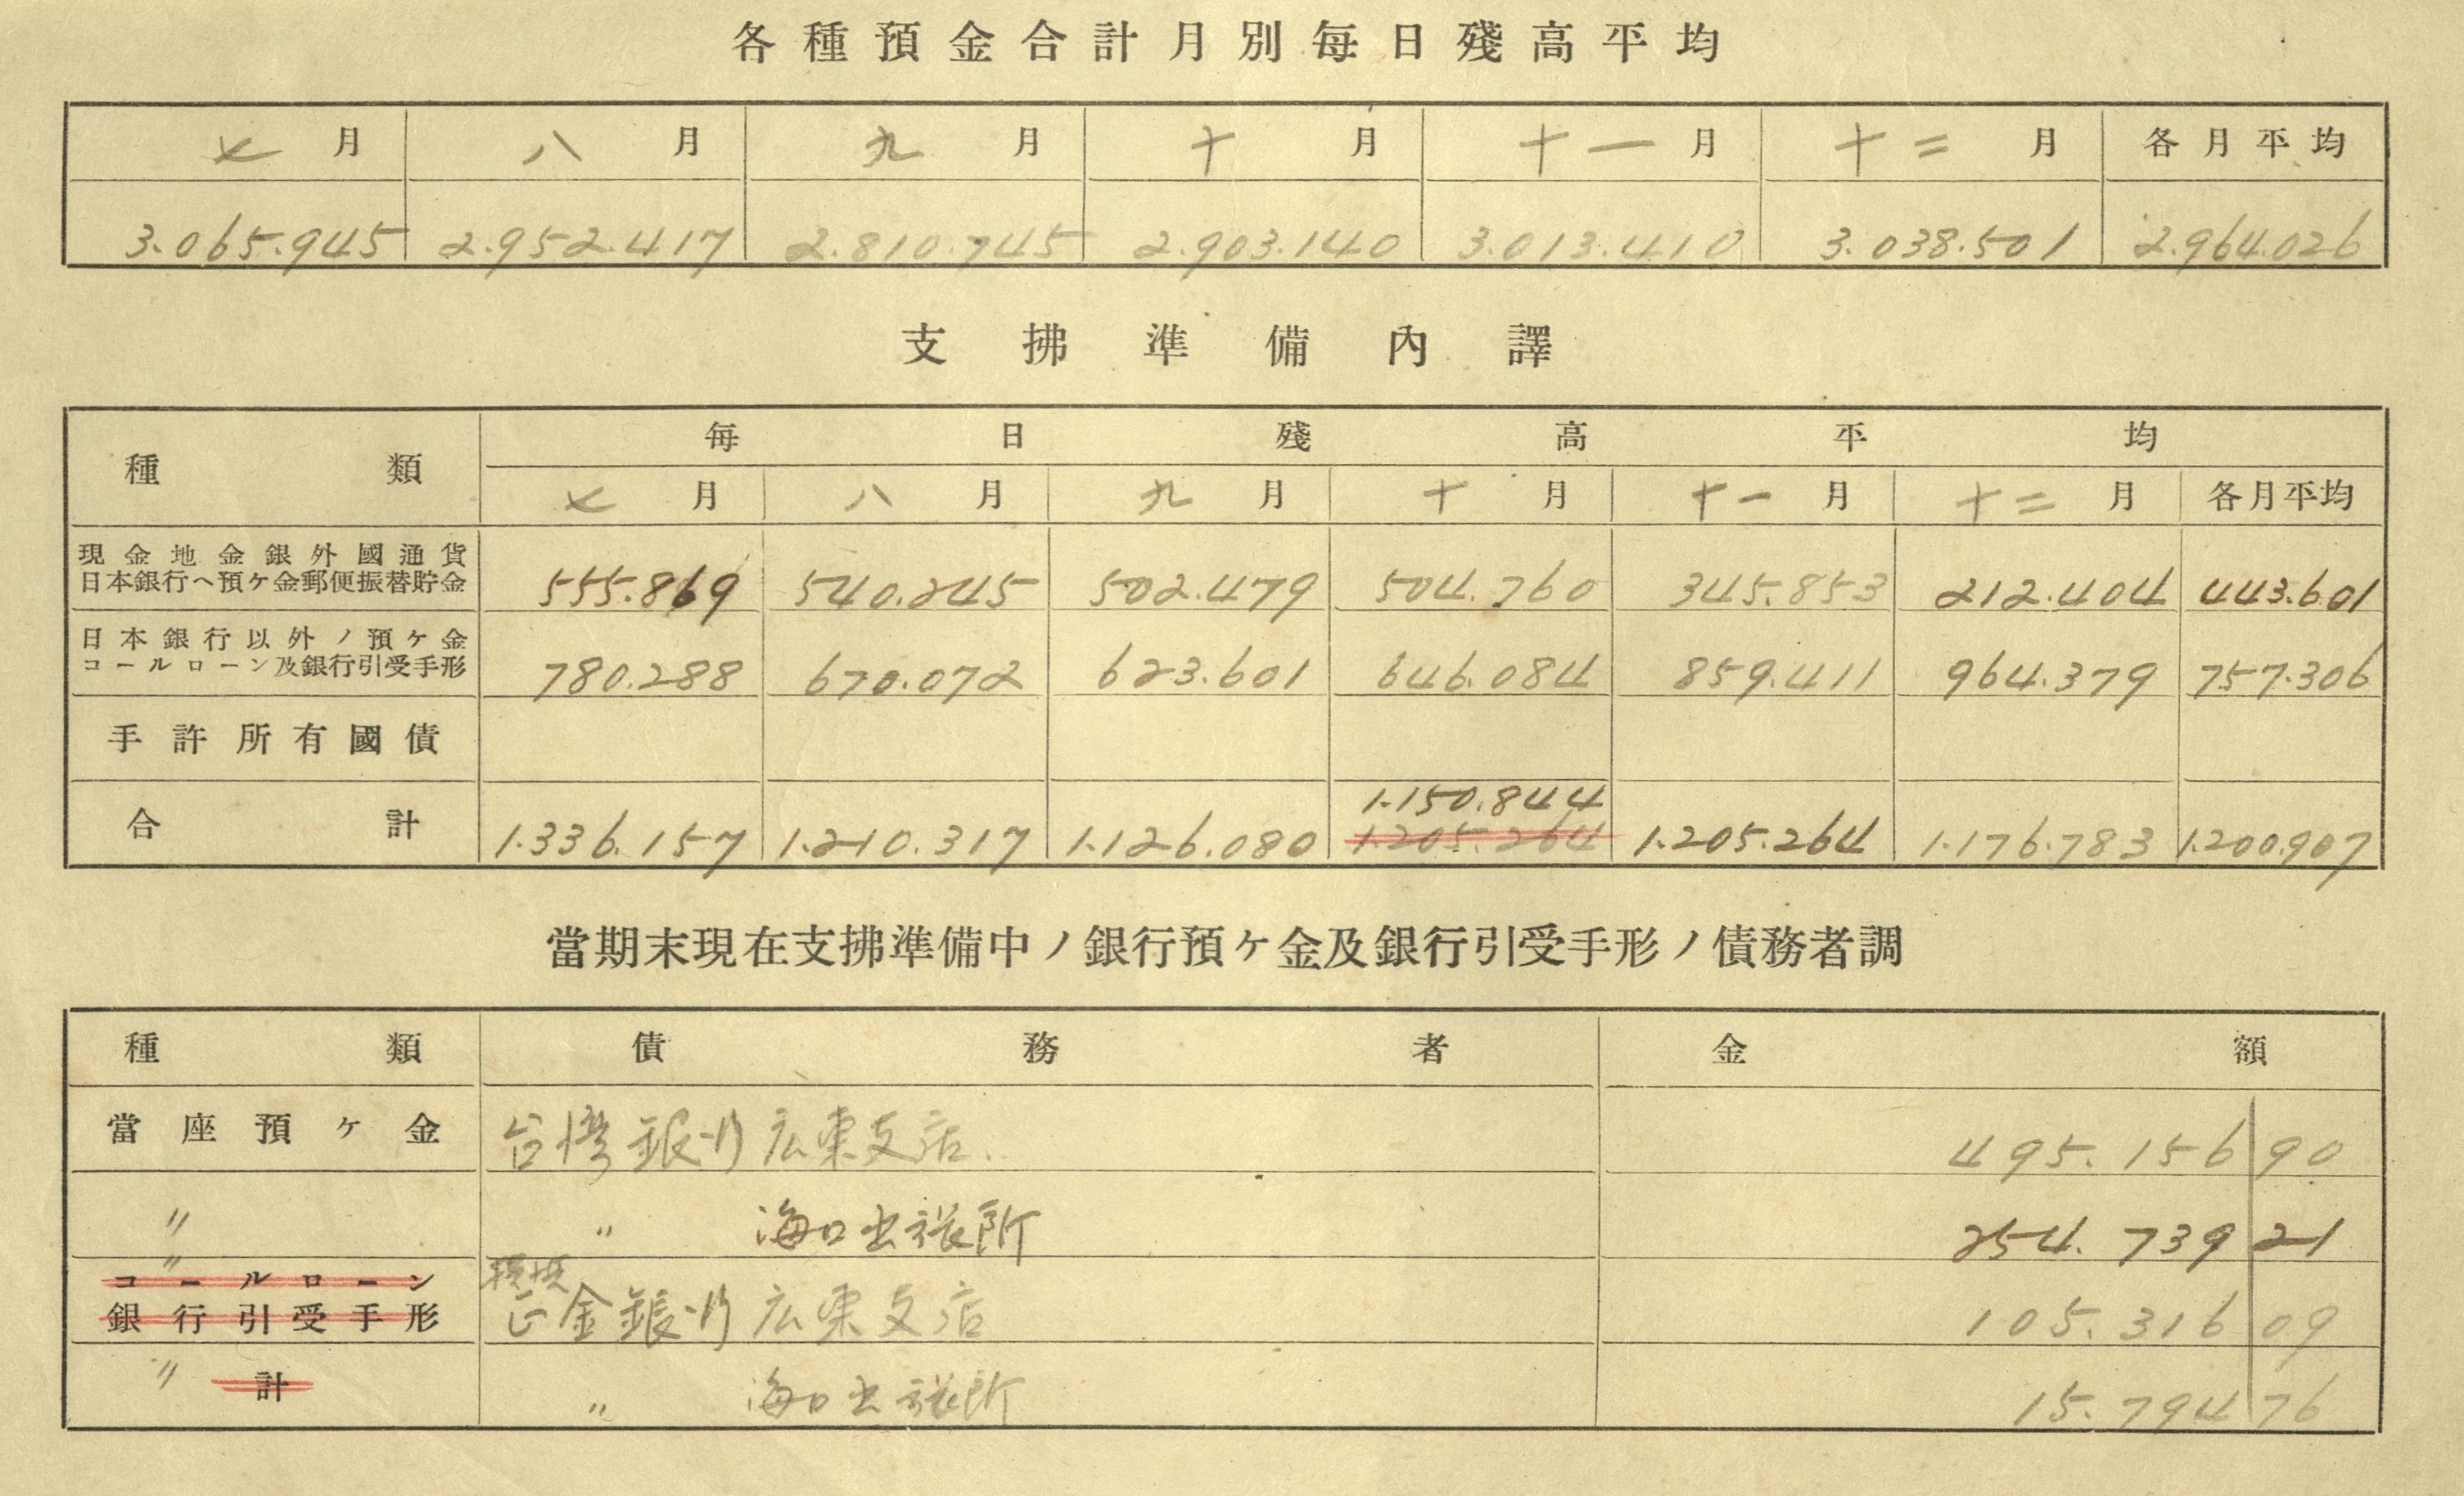 各種預金合計月別每日殘高平均
七月 八月 九月 十月 十一月 十二月 各月平均
3.065.945 2.952.417 2.810.745 2.903.140 3.013.410 3.038.501 2.964.026
支拂準備內譯
種類 每日殘高平均
七月 八月 九月 十月 十一月 十二月 各月平均
現金地金銀外國通貨
日本銀行へ預ヶ金郵便振替貯金 555.869 540.245 502.479 504.760 345.853 212.404 443.601
日本銀行以外ノ預ヶ金
コールローン及銀行引受手形 780.288 670.072 623.601 646.084 859.411 964.379 757.306
手許所有國債
1.150.844
合計 1.336.157 1.210.317 1.126.080 1.205.264 1.205.264 1.176.783 1.200.907
當期末現在支拂準備中ノ銀行預ヶ金及銀行引受手形ノ債務者調
種類 債務者 金額
當座預ヶ金 台湾銀行広東支店. 495.156 90
〃 〃 海口出張所 254.739 21
〃 横浜
コールローン
銀行引受手形 正金銀行広東支店 105.316 09
〃 計 〃 海口出張所 15.794 76